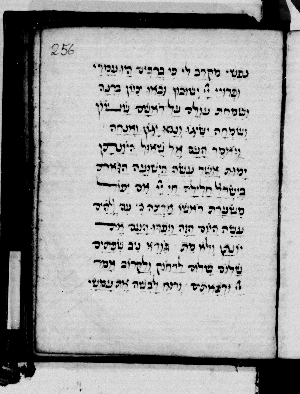 256
נפשי מקרב לי כי ברבים היו עמדי
ופדויי יי ישובון ובאו ציון ברנה
ושמחת עולם על ראשם ששון
ושמחה ישיגו ונסו יגון ואנחה
ויאמר העם אל שאול היונתן
ימות אשר עשה הישועה הגדולה
בישראל חלילה חי יי אם יפול
משערת ראשו ארצה כי עם אלהים
עשה היום הזה ויפדו העם את
יונתן ולא מת בורא ניב שפתים
שלום שלום לרחוק ולקרוב אמר
יי ורפאתיו ורוח לבשה את עמשי